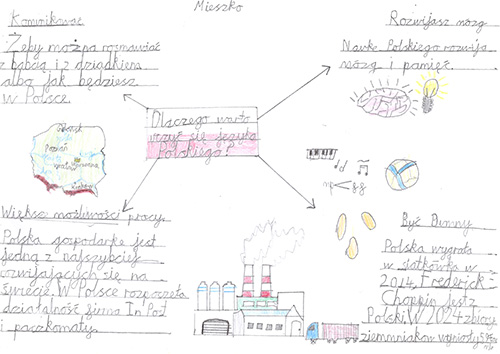 Mieszko
Komunikować
Żeby można rozmawiać
z babcią i z dziadkiem
albo jak będziesz
w Polsce.
Rozwijasz mózg
Nauka Polskiego rozwija
mózg i pamięć.
Dlaczego warto
uczyć się języka
Polskiego?
Gdańsk
Poznań
Warszawa
Kraków
mp < ff
Większe możliwości pracy.
Polska gospodarka jest
jedną z najszybciej
rozwijających się na
świecie. W Polsce rozpoczęła
działalność firma In Post
i paczkomaty.
Być Dumny
Polska wygrała
w siatkówkę w
2014. Frederick
Choppin jest z
Polski. W 2024 zbiory
ziemniaków wyniosły